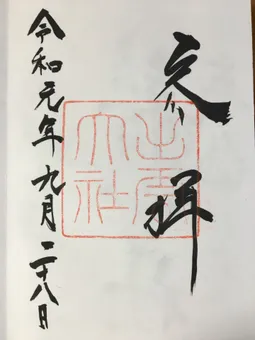 参拝
出雲
大社
令和元年九月二十八日